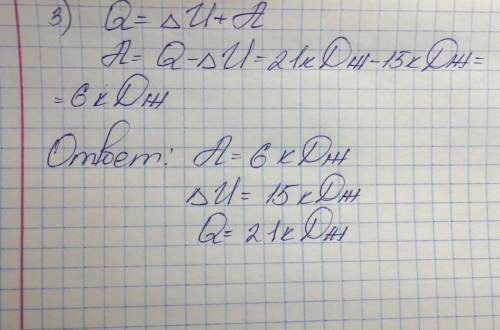 3) Q = ΔU + A
A = Q - ΔU = 21 кДж - 15 кДж =
= 6 кДж
Ответ: A = 6 кДж
ΔU = 15 кДж
Q = 21 кДж